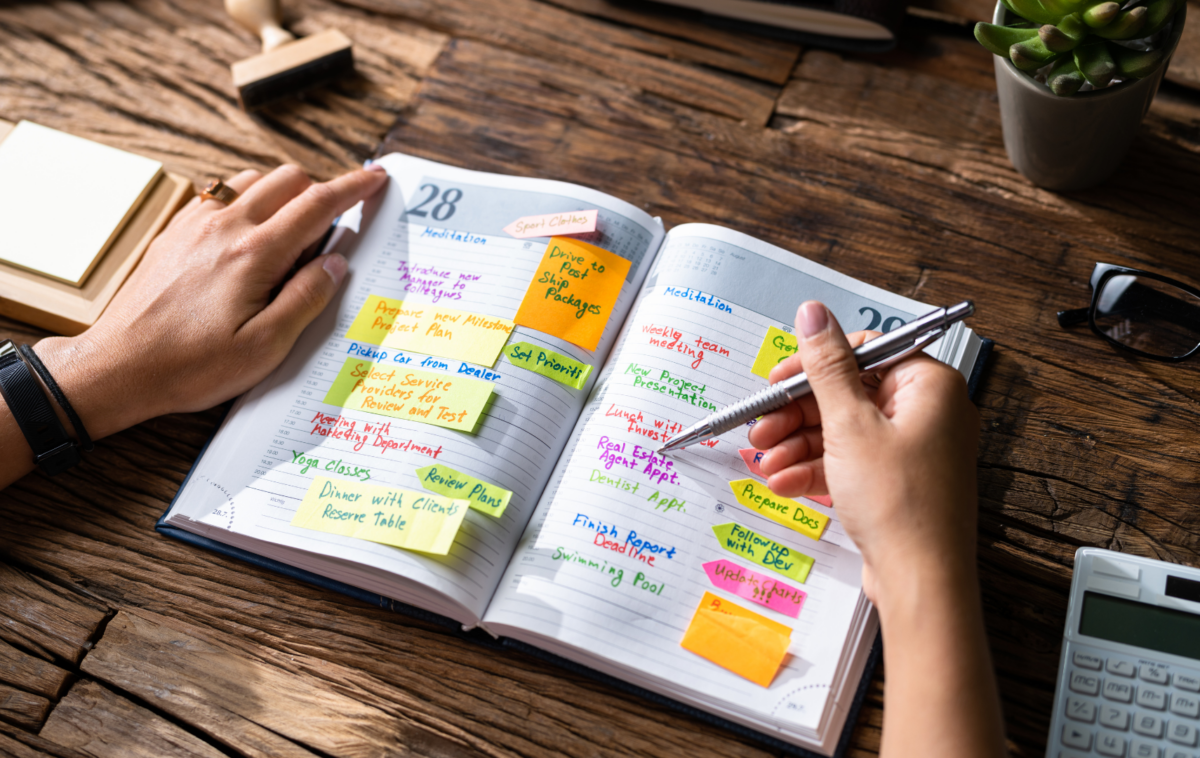 28
Sport Clothes
Meditation
Drive to
Post
Ship
Packages
Introduce new
Manager to
Colleagues
Prepare new Milestone
Project Plan
Set Priorits
Pickup Car from Dealer
Select Service
Providers for
Review and Test
Meeting with
Marketing Department
Yoga Classes
Review Plans
Dinner with Clients
Reserve Table
August
Meditation
Weekly team
meeting
New Project
Presentation
Lunch with
Real Estate
Agent Appt.
Dentist Appt.
Prepare Docs
Finish Report
Deadline
Followup
with Dev
Swimming Pool
Update Charts
???
MC
MR
M-
M+
7
8
9
4
5
6